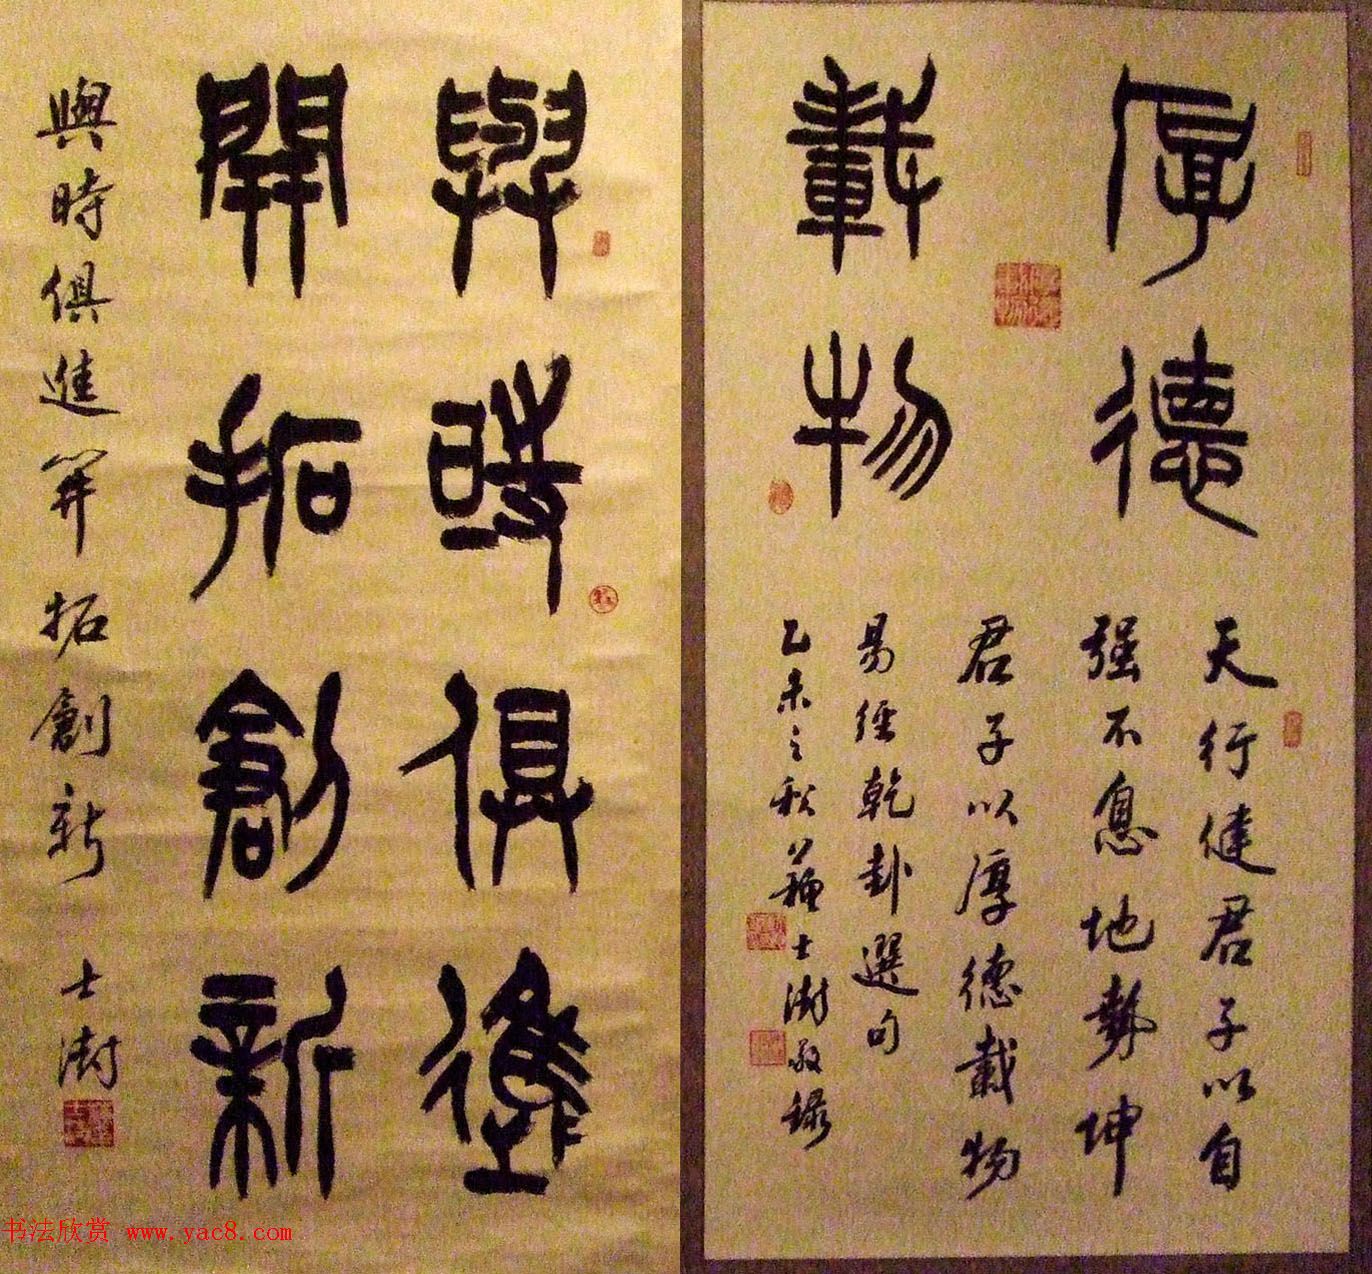 與時俱進
開拓創新
與時俱進開拓創新 士澍
厚德
載物
天行健君子以自
强不息地勢坤
君子以厚德載物
易經乾卦選句
乙未之秋蘇士澍敬録
书法欣赏 www.yac8.com